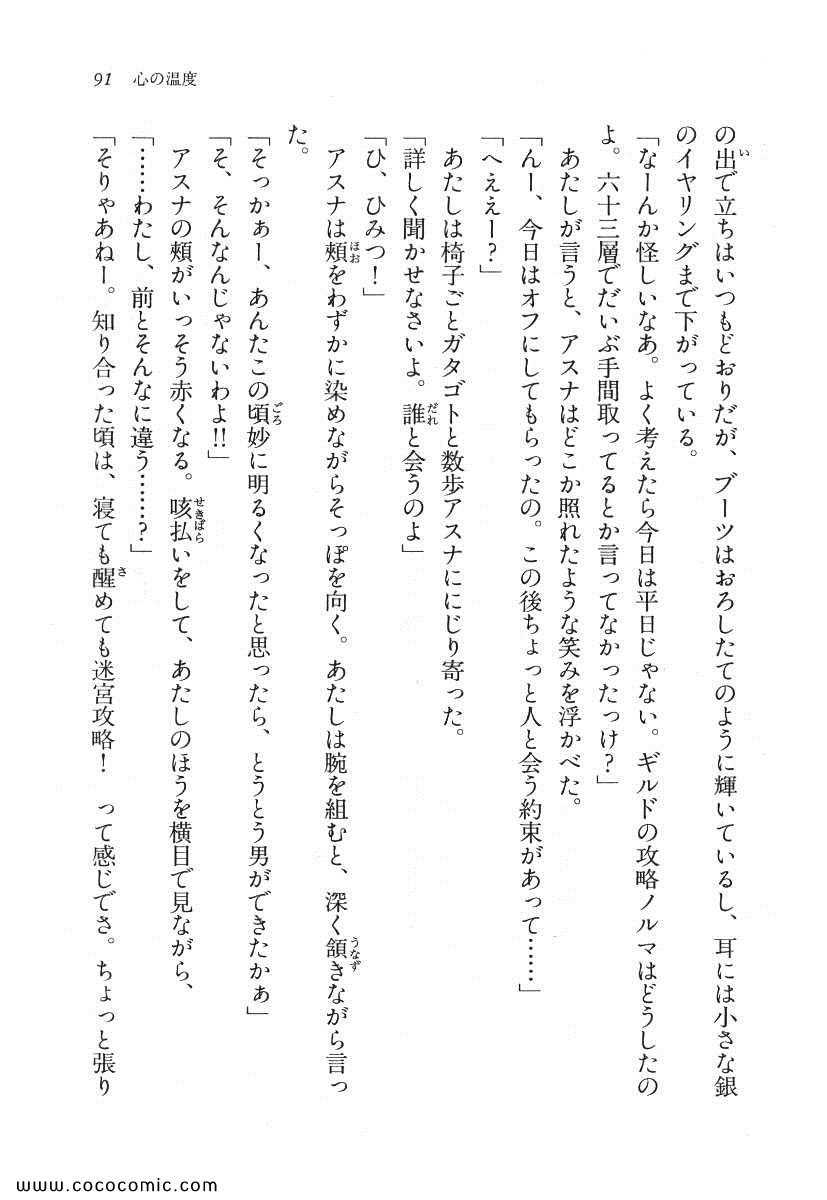 91 心の温度
の出で立ちはいつもどおりだが、ブーツはおろしたてのように輝いているし、耳には小さな銀
のイヤリングまで下がっている。
「なーんか怪しいなあ。よく考えたら今日は平日じゃない。ギルドの攻略ノルマはどうしたの
よ。六十三層でだいぶ手間取ってるとか言ってなかったっけ？」
あたしが言うと、アスナはどこか照れたような笑みを浮かべた。
「んー、今日はオフにしてもらったの。この後ちょっと人と会う約束があって……」
「へええー？」
あたしは椅子ごとガタゴトと数歩アスナににじり寄った。
「詳しく聞かせなさいよ。誰と会うのよ」
「ひ、ひみつ！」
アスナは頬をわずかに染めながらそっぽを向く。あたしは腕を組むと、深く頷きながら言っ
た。
「そっかぁー、あんたこの頃妙に明るくなったと思ったら、とうとう男ができたかぁ」
「そ、そんなんじゃないわよ!!」
アスナの頬がいっそう赤くなる。咳払いをして、あたしのほうを横目で見ながら、
「……わたし、前とそんなに違う……？」
「そりゃあねー。知り合った頃は、寝ても醒めても迷宮攻略！　って感じでさ。ちょっと張り
www.cococomic.com